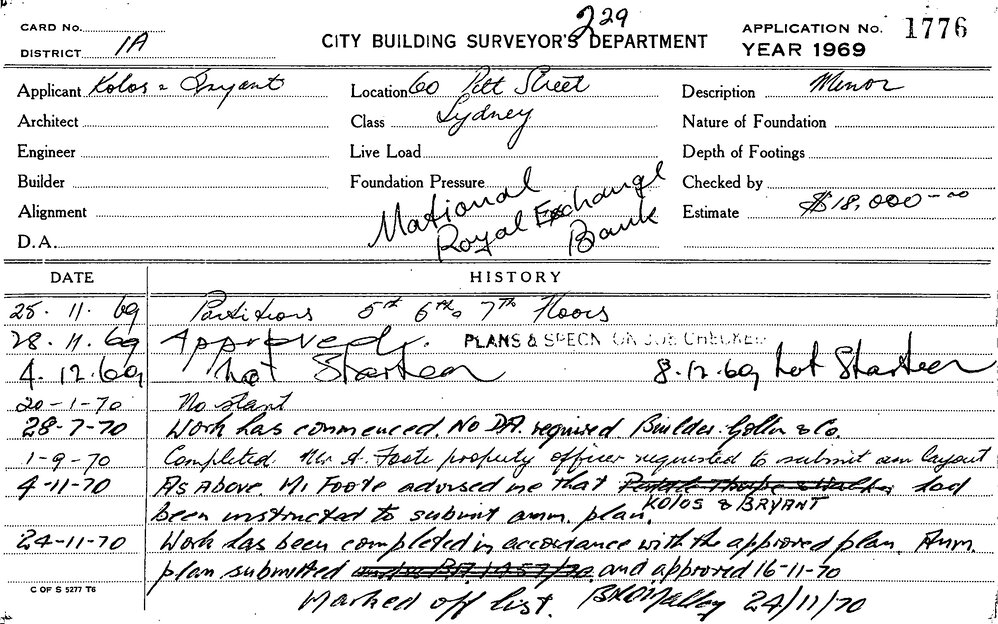 CARD No.
DISTRICT 1A
229
CITY BUILDING SURVEYOR'S DEPARTMENT
APPLICATION No. 1776
YEAR 1969
Applicant Kolos & Bryant
Location 60 Pitt Street
Description Minor
Architect
Class Sydney
Nature of Foundation
Engineer
Live Load
Depth of Footings
Builder
Foundation Pressure
Checked by
Alignment
National
Royal Exchange
Bank
Estimate $18,000-00
D.A.
DATE
HISTORY
25.11.69 Partitions 5th 6th & 7th Floors
28.11.69 Approved. PLANS & SPECN ON JOB CHECKED
4.12.69 Not Started 8.12.69 Not Started
20-1-70 No start
28-7-70 Work has commenced. No DA. required. Builder. Gollin & Co.
1-9-70 Completed. Mr A. Foote property officer requested to submit am layout
4-11-70 As Above. Mr Foote advised me that had
KOLOS & BRYANT
been instructed to submit amm. plan.
24-11-70 Work has been completed in accordance with the approved plan. Amm.
plan submitted under BA 1957/70 and approved 16-11-70
C OF S 5277 T6
Marked off list. 24/11/70